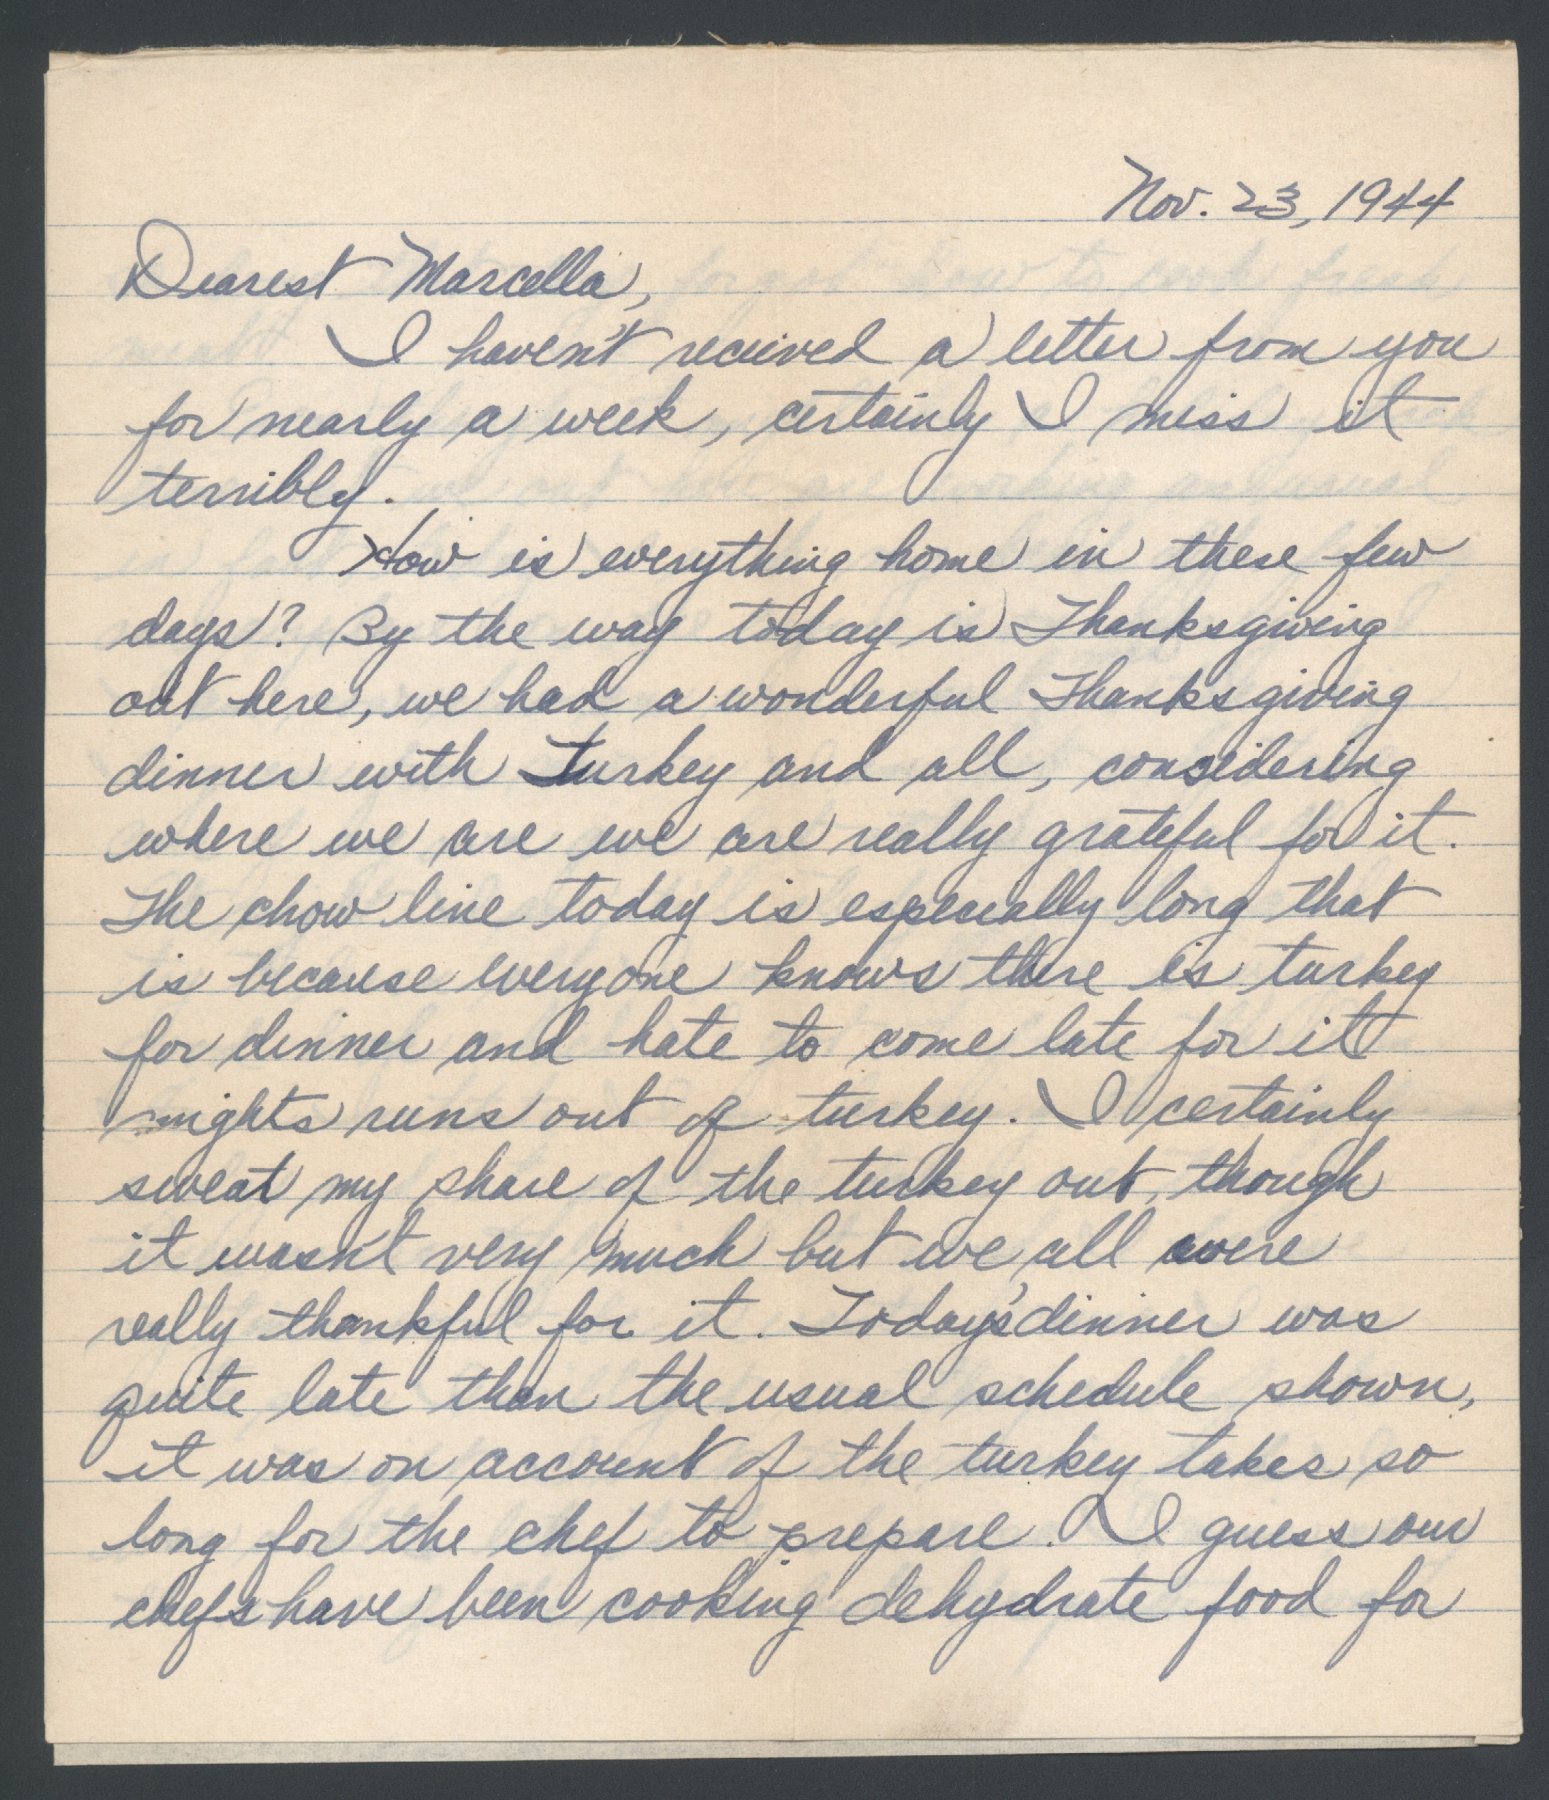 Nov. 23, 1944
Dearest Marcella,
I haven't received a letter from you
for nearly a week, certainly I miss it
terribly.
How is everything home in these few
days? By the way today is Thanksgiving
out here, we had a wonderful Thanksgiving
dinner with Turkey and all, considering
where we are we are really grateful for it.
The chow line today is especially long that
is because everyone knows there is turkey
for dinner and hate to come late for it
mights runs out of turkey. I certainly
sweat my share of the turkey out, though
it wasn't very much but we all were
really thankful for it. Today's dinner was
quite late than the usual schedule shown,
it was on account of the turkey takes so
long for the chef to prepare. I guess our
chefs have been cooking dehydrate food for